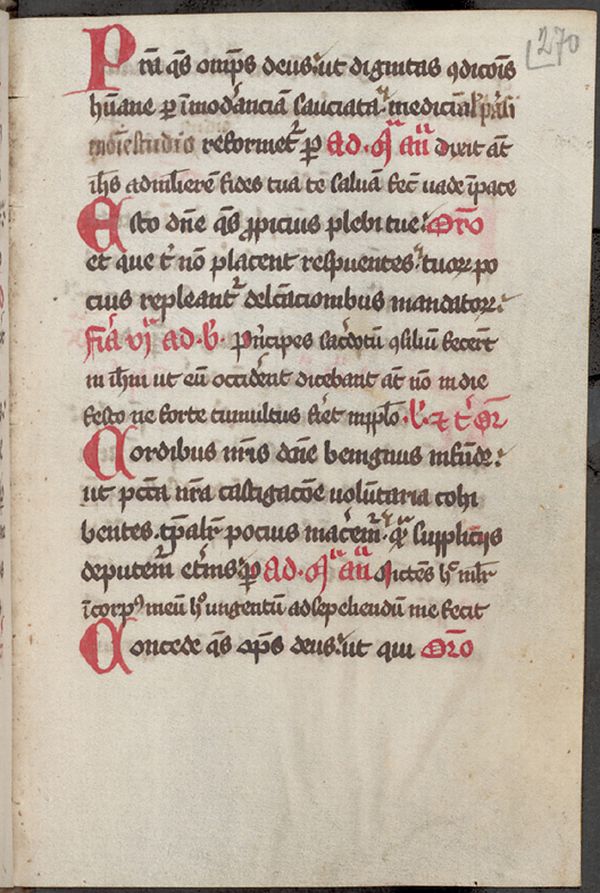 270
Pr̄a qs̄ omp̄s deus. ut dignitas ꝯdicōis
hūane ꝑ īmodān̄ciā sauciata. medicinal' ꝑsi
monie studiis reformet᷑ ꝑ ad. m̄ an̄ dixit aūt
ih̄s ad mlierē fides tua te saluā fec̄ uade īpace
Esto dn̄e qs̄ ꝓpicius plebi tue. Oro
et que t̄ nō placent respuentes. tuoꝝ po
cius repleant᷑ delc̄acionibus mandatoꝝ.
Fīa vj ad. b̄. Pn̄cipes sac̄dotū ꝯsiliū fecer̄t
in ih̄m ut eū occid̄ent dicebant aūt nō in die
festo ne forte tumultus fiēt in pp̄lo.
Cordibus nr̄is dn̄e benignus infūde.
ut pcc̄a nr̄a castigacōe uolūtaria cohi
bentes. tp̄alr̄ pocius mac̄em᷑. qm̄ suppliciis
deputem᷑ et̄nis ꝑ ad. m̄ an̄ Mittēs h̄ mlr̄
ī corpꝰ meū h̄ ungentū ad sepeliendū me fecit
Concede qs̄ op̄s deus. ut qui Oro